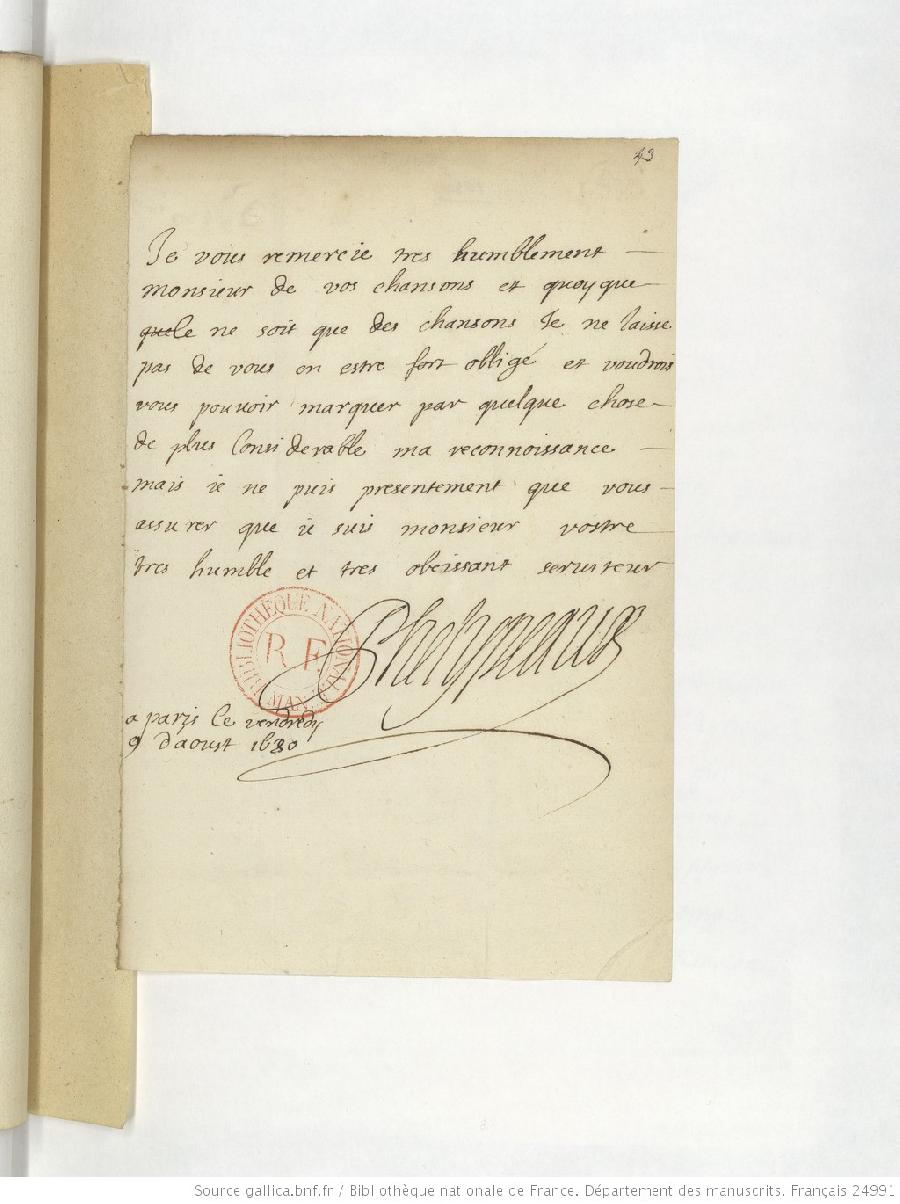 43
Je vous remercie tres humblement
monsieur de vos chansons et quoy que
quele ne soit que des chansons Je ne laisse
pas de vous en estre fort obligé et voudrois
vous pouvoir marquer par quelque chose
de plus Considerable ma reconnoissance
mais ie ne puis presentement que vous
assurer que ie suis monsieur vostre
tres humble et tres obeissant serviteur
BIBLIOTHEQUE NATIONALE
R F
MAN.
a paris le vendredy
9 daoust 1680
Source gallica.bnf.fr / Bibliothèque nationale de France. Département des manuscrits. Français 24991